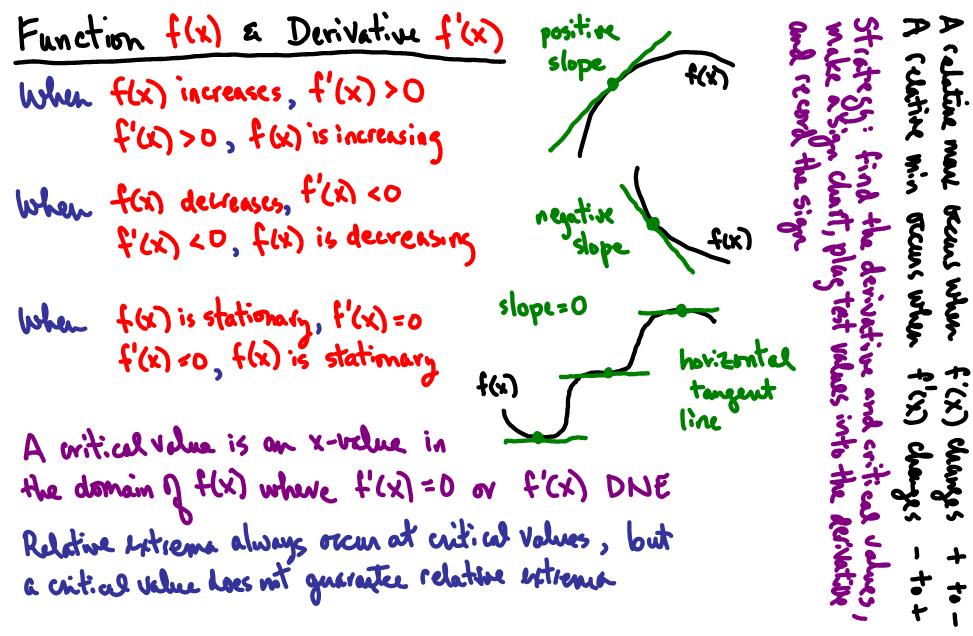 Function f(x) & Derivative f'(x)
When f(x) increases, f'(x) >0
f'(x) >0, f(x) is increasing
When f(x) decreases, f'(x) <0
f'(x) <0, f(x) is decreasing
When f(x) is stationary, f'(x)=0
f'(x)=0, f(x) is stationary
A critical value is an x-value in
the domain of f(x) where f'(x)=0 or f'(x) DNE
Relative extrema always occur at critical values, but
a critical value does not guarantee relative extrema
positive
slope
f(x)
negative
slope
f(x)
slope=0
f(x)
horizontal
tangent
line
A relative max occurs when f'(x) changes + to -
A relative min occurs when f'(x) changes - to +
Strategy: find the derivative and critical values,
make a sign chart, plug test values into the derivative
and record the sign